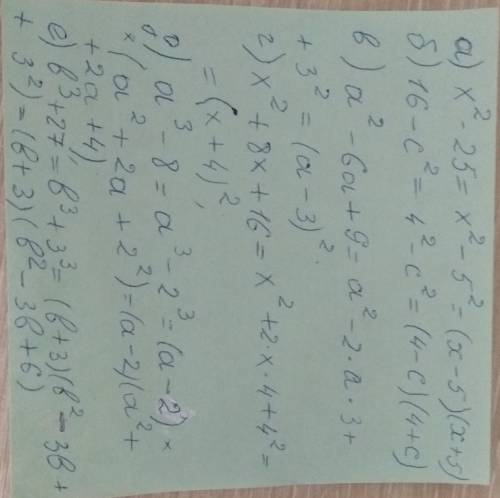 а) x² - 25 = x² - 5² = (x - 5)(x + 5)
б) 16 - c² = 4² - c² = (4 - c)(4 + c)
в) a² - 6a + 9 = a² - 2 · a · 3 +
+ 3² = (a - 3)².
г) x² + 8x + 16 = x² + 2 · x · 4 + 4² =
= (x + 4)²,
д) a³ - 8 = a³ - 2³ = (a - 2) ×
× (a² + 2a + 2²) = (a - 2)(a² +
+ 2a + 4),
е) b³ + 27 = b³ + 3³ = (b + 3)(b² - 3b +
+ 3²) = (b + 3)(b² - 3b + 6)